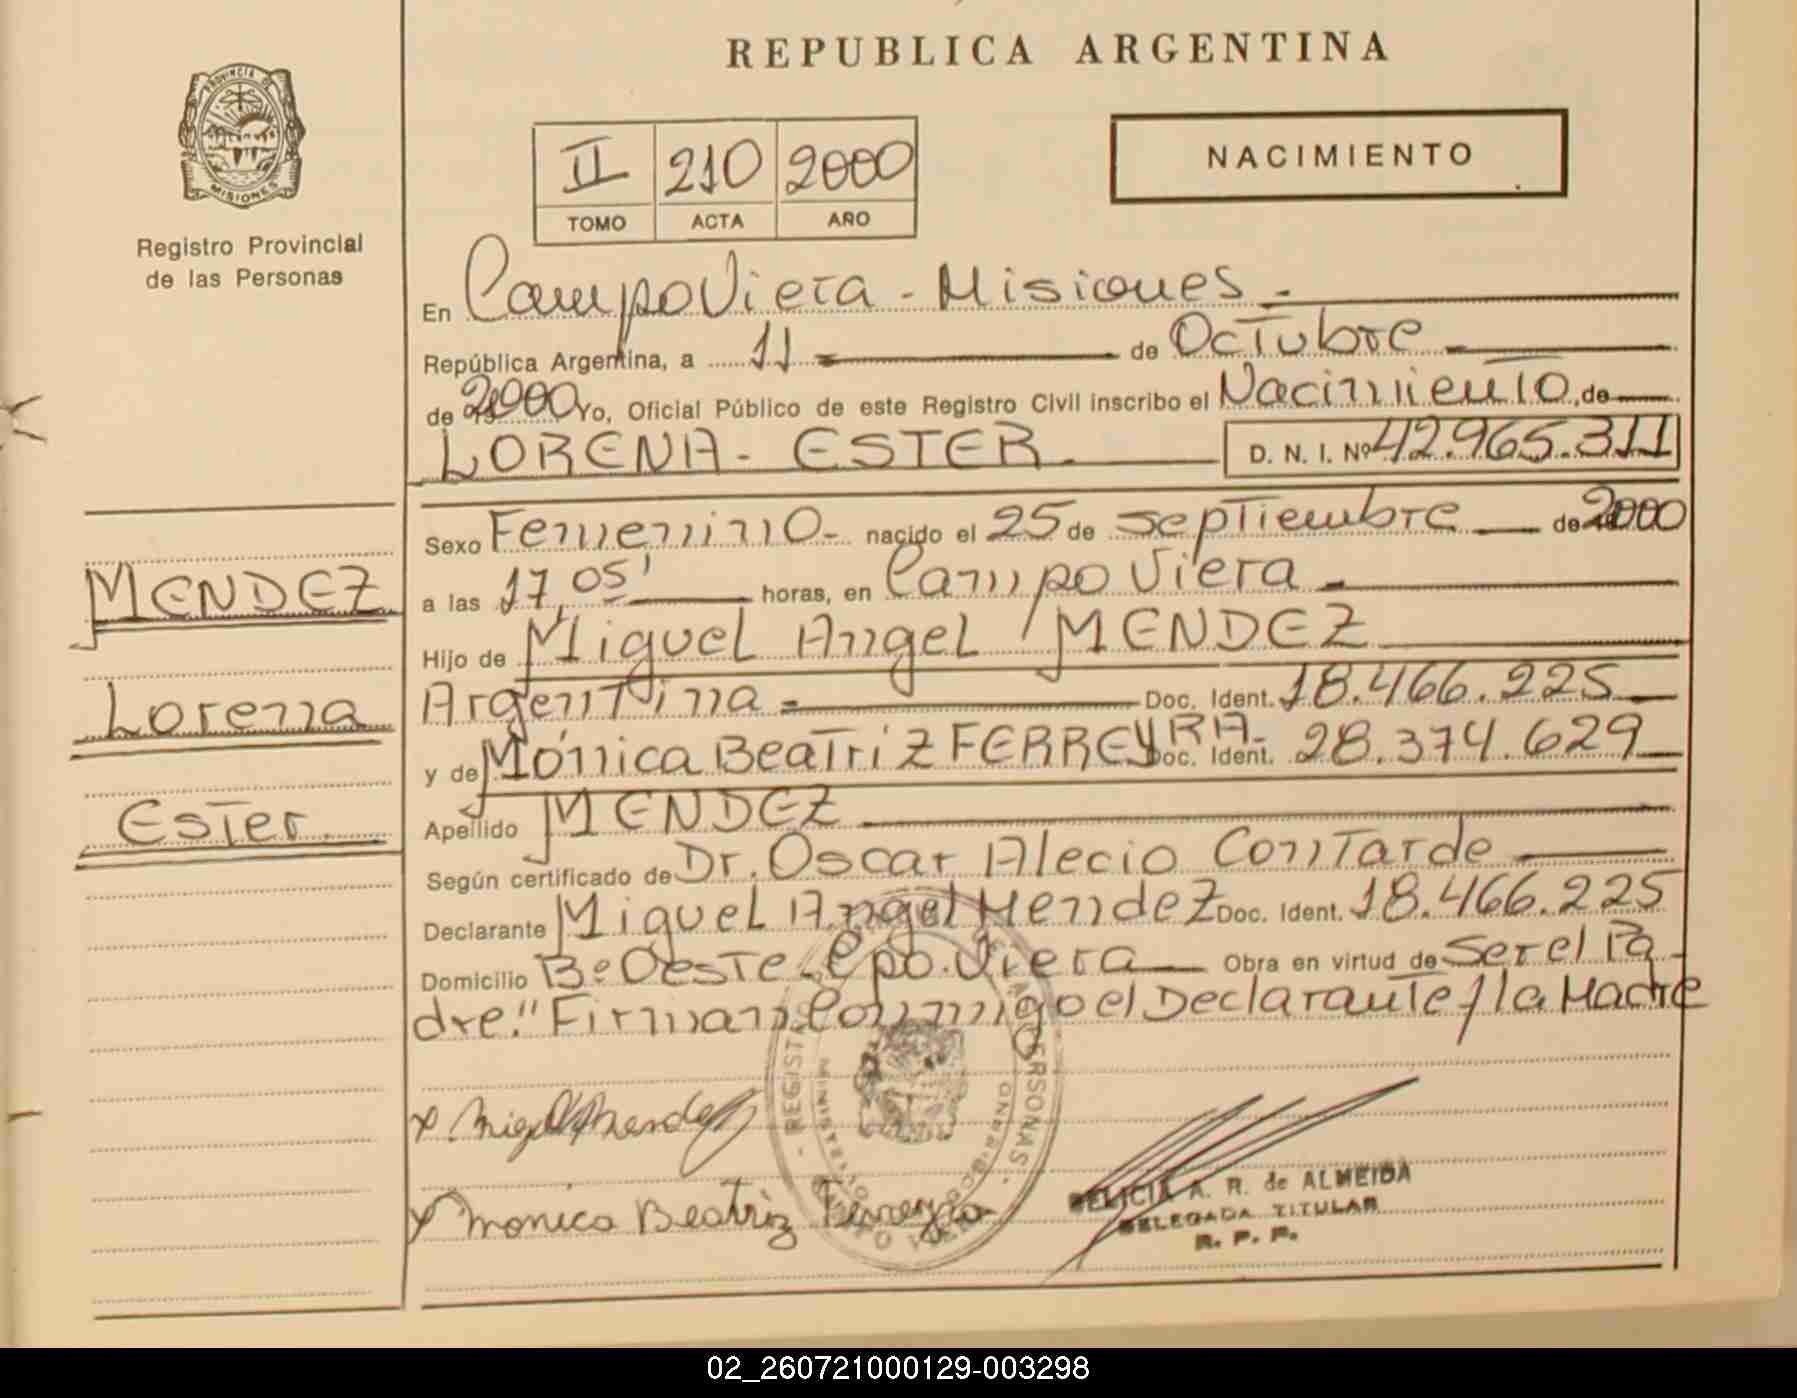 REPUBLICA ARGENTINA
PROVINCIA DE
MISIONES
Registro Provincial
de las Personas
II 210 2000
TOMO ACTA AÑO
NACIMIENTO
En Campo Viera - Misiones.-
República Argentina, a 11 de Octubre
de 2000 Yo, Oficial Público de este Registro Civil inscribo el Nacimiento, de
LORENA - ESTER. D. N. I. Nº 42.965.311
Sexo Femenino - nacido el 25 de septiembre de 2000
a las 17,05' horas, en Campo Viera -
Hijo de Miguel Angel MENDEZ
Argentina - Doc. Ident. 18.466.225
y de Mónica Beatriz FERREYRA - Doc. Ident. 28.374.629
Apellido MENDEZ
Según certificado de Dr. Oscar Alecio Contarde
Declarante Miguel Angel Mendez Doc. Ident. 18.466.225
Domicilio Bº Oeste - Cpo. Viera Obra en virtud de ser el Pa-
dre." Firman Conmigo el Declarante y la Madre
MENDEZ
Lorena
Ester
x Miguel A Mendez
x Monica Beatriz Ferreyra
A. R. de ALMEIDA
DELEGADA TITULAR
R. P. P.
02_260721000129-003298